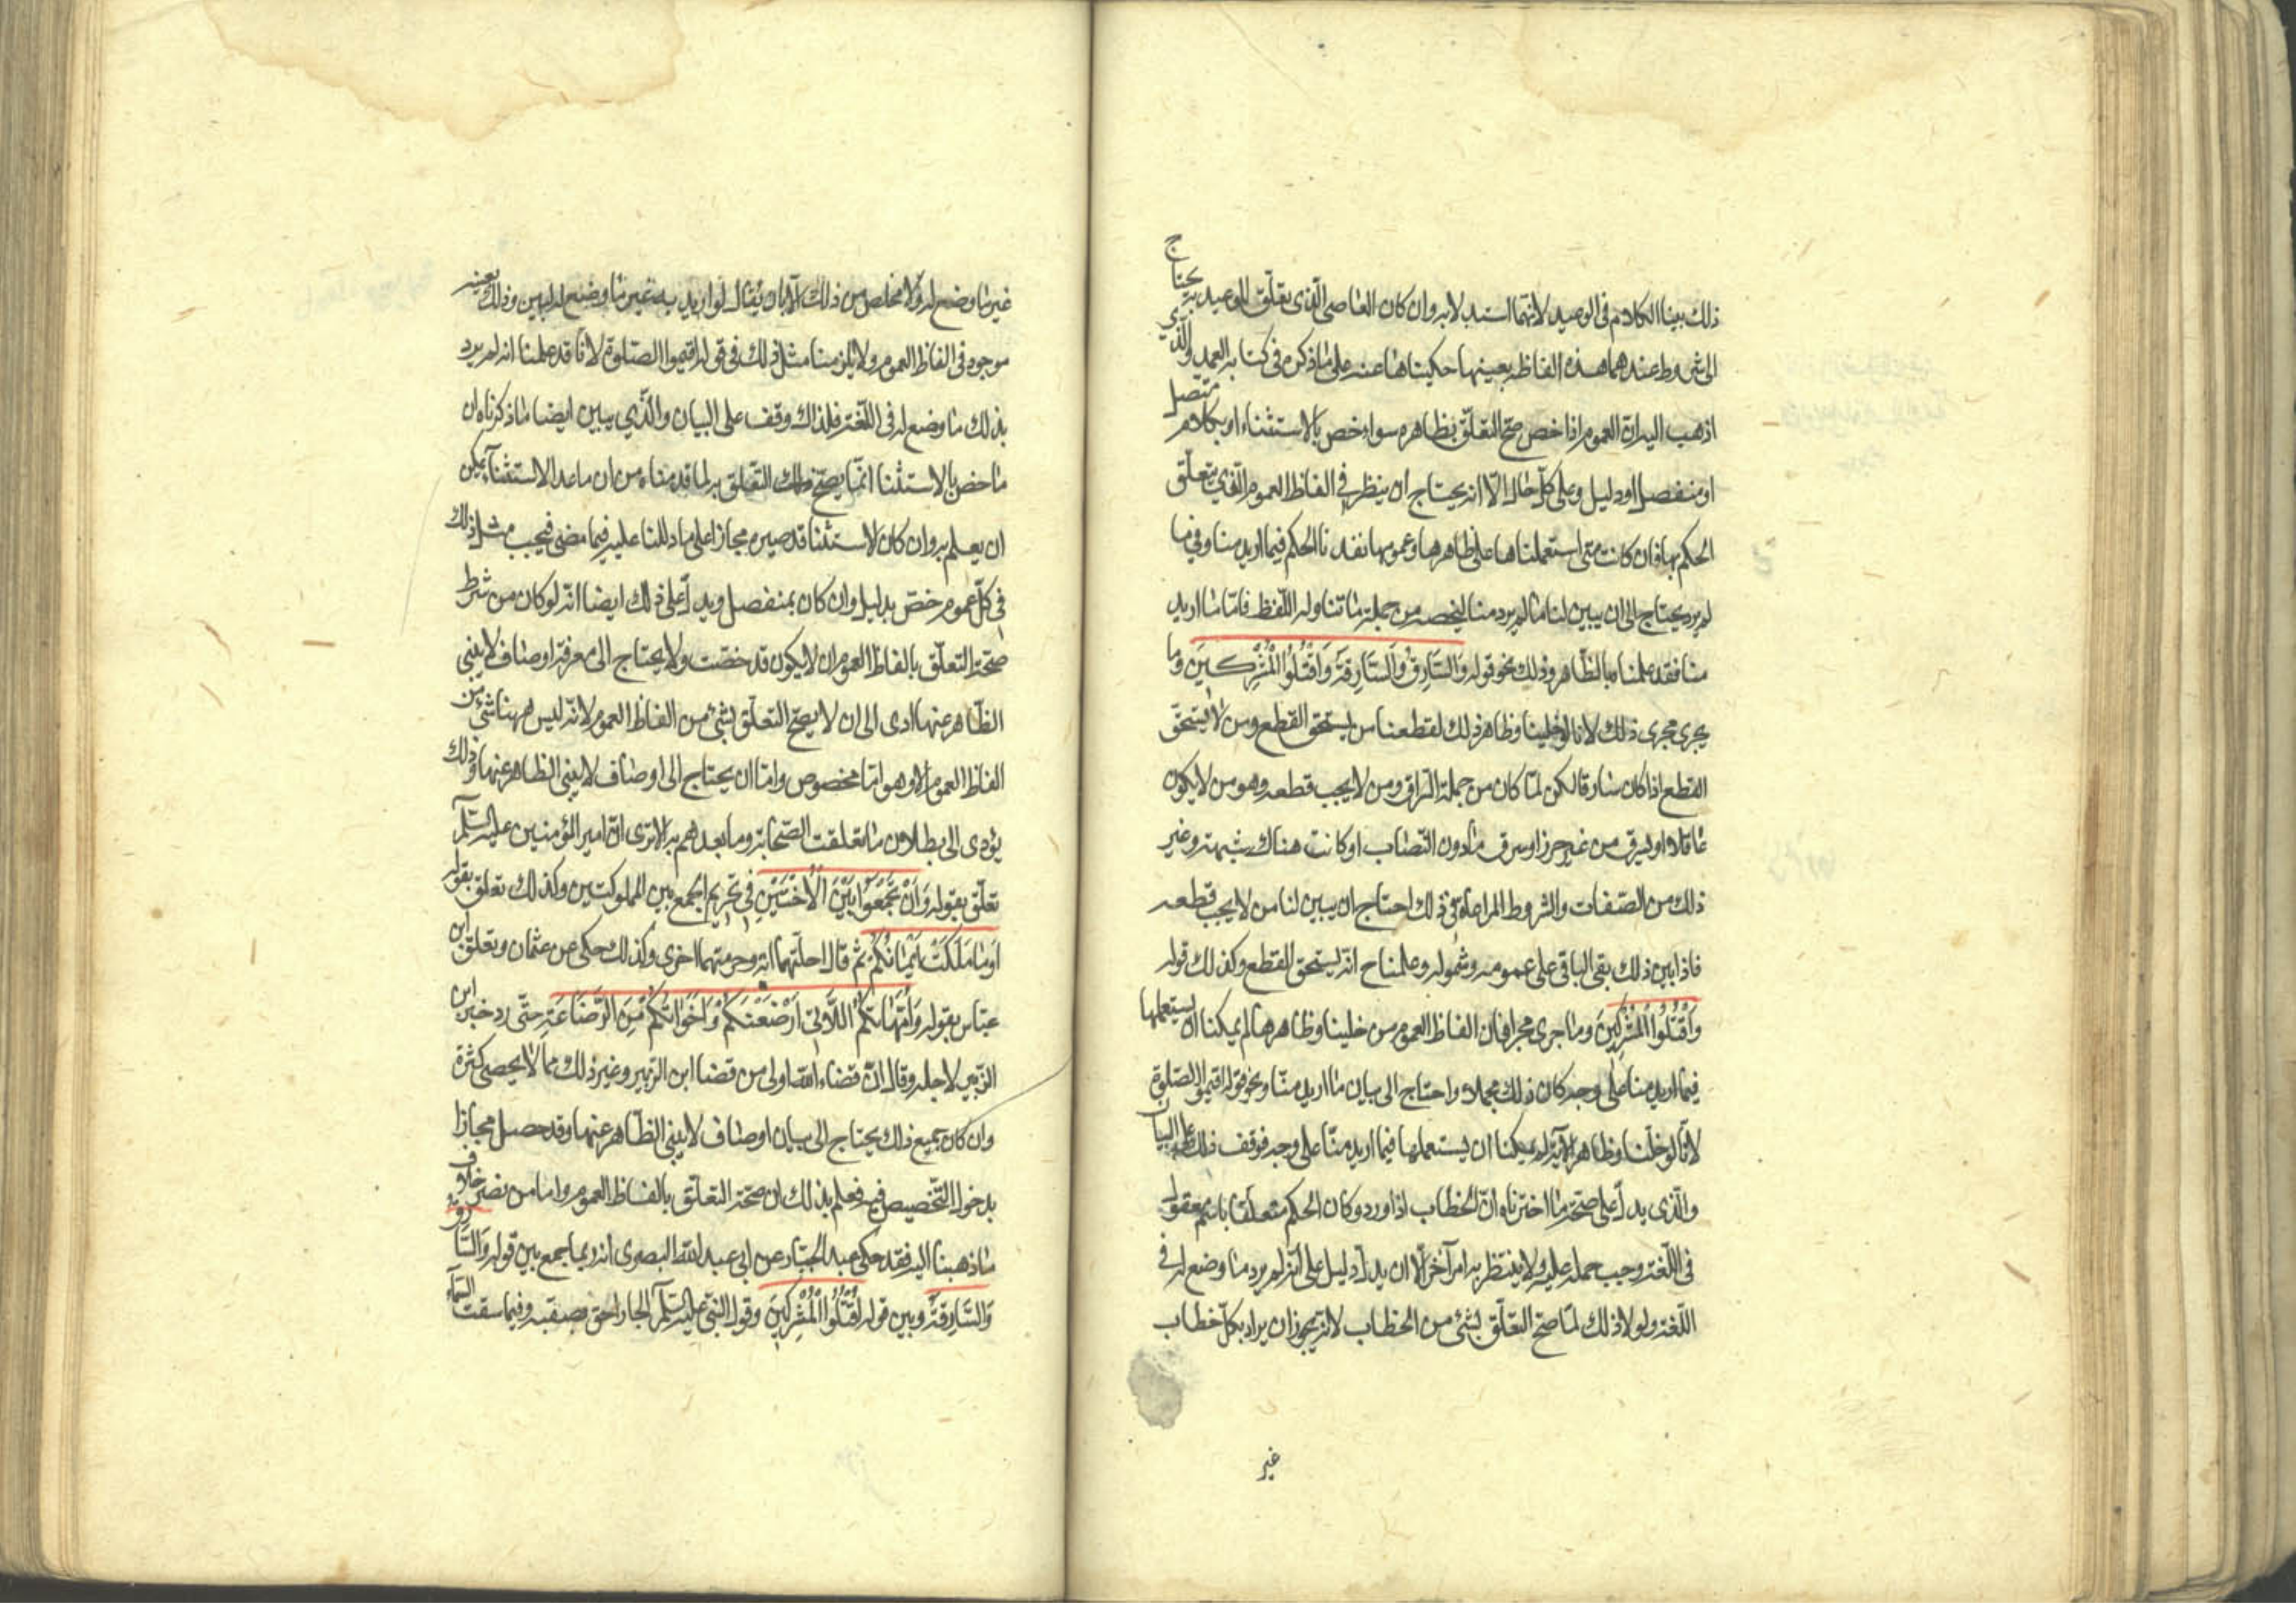 ذلك بينا الكلام في الوعيد لانهما استدلا به وان كان العاصي الذي يتعلق الوعيد به يحتاج
الى شروط عندهما هذه الفاظه بعينها حكيناها عنه على ما ذكره في كتابه العمد والذي
اذهب اليه ان العموم اذا خص صح التعلق بظاهره سواء خص بالاستثناء او بكلام متصل
او منفصل او دليل وعلى كل حال الا انه يحتاج ان ينظر في الفاظ العموم الذي يتعلق
الحكم بها فان كانت متى استعملناها على ظاهرها وعمومها نفذنا الحكم فيما اريد منا وفي ما
لم يرد يحتاج الى ان يبين لنا ما لم يرد منا ليخصه من جملة ما تناوله اللفظ فاما ما اريد
منا فقد علمناه بالظاهر وذلك نحو قوله وَالسَّارِقُ وَالسَّارِقَةُ وَاقْتُلُوا الْمُشْرِكِينَ وما
يجري مجرى ذلك لانا لو خلينا وظاهر ذلك لقطعنا من يستحق القطع ومن لا يستحق
القطع اذا كان سارقا لكن لما كان من جملة السراق ومن لا يجب قطعه وهو من لا يكون
عاقلا او يسرق من غير حرز او سرق ما دون النصاب او كانت هناك شبهة وغير
ذلك من الصفات والشروط المراعاة في ذلك احتاج ان يبين لنا من لا يجب قطعه
فاذا بين ذلك بقي الباقي على عمومه وشموله وعلمنا ح انه يستحق للقطع وكذلك قوله
وَاقْتُلُوا الْمُشْرِكِينَ وما جرى مجراه فان الفاظ العموم من خلينا وظاهرها لم يمكنا ان يستعملها
فيما اريد منا على وجه كان ذلك مجملا واحتاج الى بيان ما اريد منا ونحو قوله اقيموا الصلوة
لانا لو خلنا وظاهر الآية لم يمكنا ان يستعملها فيما اريد منا على وجه فوقف ذلك على البيان
والذي يدل على صحة ما اخترناه ان الخطاب اذا ورد وكان الحكم متعلقا باسم معقول
في اللغة وجب حمله عليه ولا ينتظر به امر آخر الا ان يدل دليل على انه لم يرد ما وضع له في
اللغة ولولا ذلك لما صح التعلق بشيء من الخطاب لانه يجوز ان يراد بكل خطاب
غير
غير ما وضع له ولا مخلص من ذلك الا بان يقال لو اريد به غير ما وضع له لبين وذلك بعينه
موجود في الفاظ العموم ولا يلزمنا مثل ذلك في قوله اقيموا الصلوة لانا قد علمنا انه لم يرد
بذلك ما وضع له في اللغة فلذلك وقف على البيان والذي يبين ايضا ما ذكرناه ان
ما خص بالاستثنا انما يصح التعلق به لما قدمناه من ان ما عدا الاستثنا يمكن
ان يعلم به وان كان الاستثنا قد صيره مجازا على ما دللنا عليه فيما مضى فيجب مثل ذلك
في كل عموم خص بدليل وان كان بمنفصل ويدل على ذلك ايضا انه لو كان من شرط
صحة التعلق بالفاظ العموم ان لا يكون قد خصت ولا يحتاج الى معرفة اوصاف لا يبني
الظاهر عنها ادى الى ان لا يصح التعلق بشيء من الفاظ العموم لانه ليس ههنا شيء من
الفاظ العموم الا وهو اما مخصوص واما ان يحتاج الى اوصاف لا يبني الظاهر عنها وذلك
يؤدي الى بطلان ما تعلقت الصحابة وما بعدهم به الا ترى ان امير المؤمنين عليه السلم
تعلق بقوله وَاَنْ تَجْمَعُوا بَيْنَ الْاُخْتَيْنِ في تحريم الجمع بين المملوكتين وكذلك تعلق بقوله
اَوْ مَا مَلَكَتْ اَيْمَانُكُمْ ثم قال احلتهما اية وحرمتهما اخرى وكذلك حكى عن عثمان وتعلق ابن
عباس بقوله وَاُمَّهَاتُكُمُ اللَّاتِي اَرْضَعْنَكُمْ وَاَخَوَاتُكُمْ مِنَ الرَّضَاعَةِ حتى رد خبر ابن
الزبير لاجله وقال ان قضاء الله اولى من قضا ابن الزبير وغير ذلك مما لا يحصى كثرة
وان كان جميع ذلك يحتاج الى بيان اوصاف لا يبني الظاهر عنها وقد حصل مجازا
بدخول التخصيص فيه فعلم بذلك ان صحة التعلق بالفاظ العموم واما من نصر خلاف
ما ذهبنا اليه فقد حكى عبد الجبار عن ابي عبد الله البصري انه ربما جمع بين قوله وَالسَّارِقُ
وَالسَّارِقَةُ وبين قوله اقْتُلُوا الْمُشْرِكِينَ وقول النبي عليه السلم الجار احق بصقبه وفيما سقت السماء